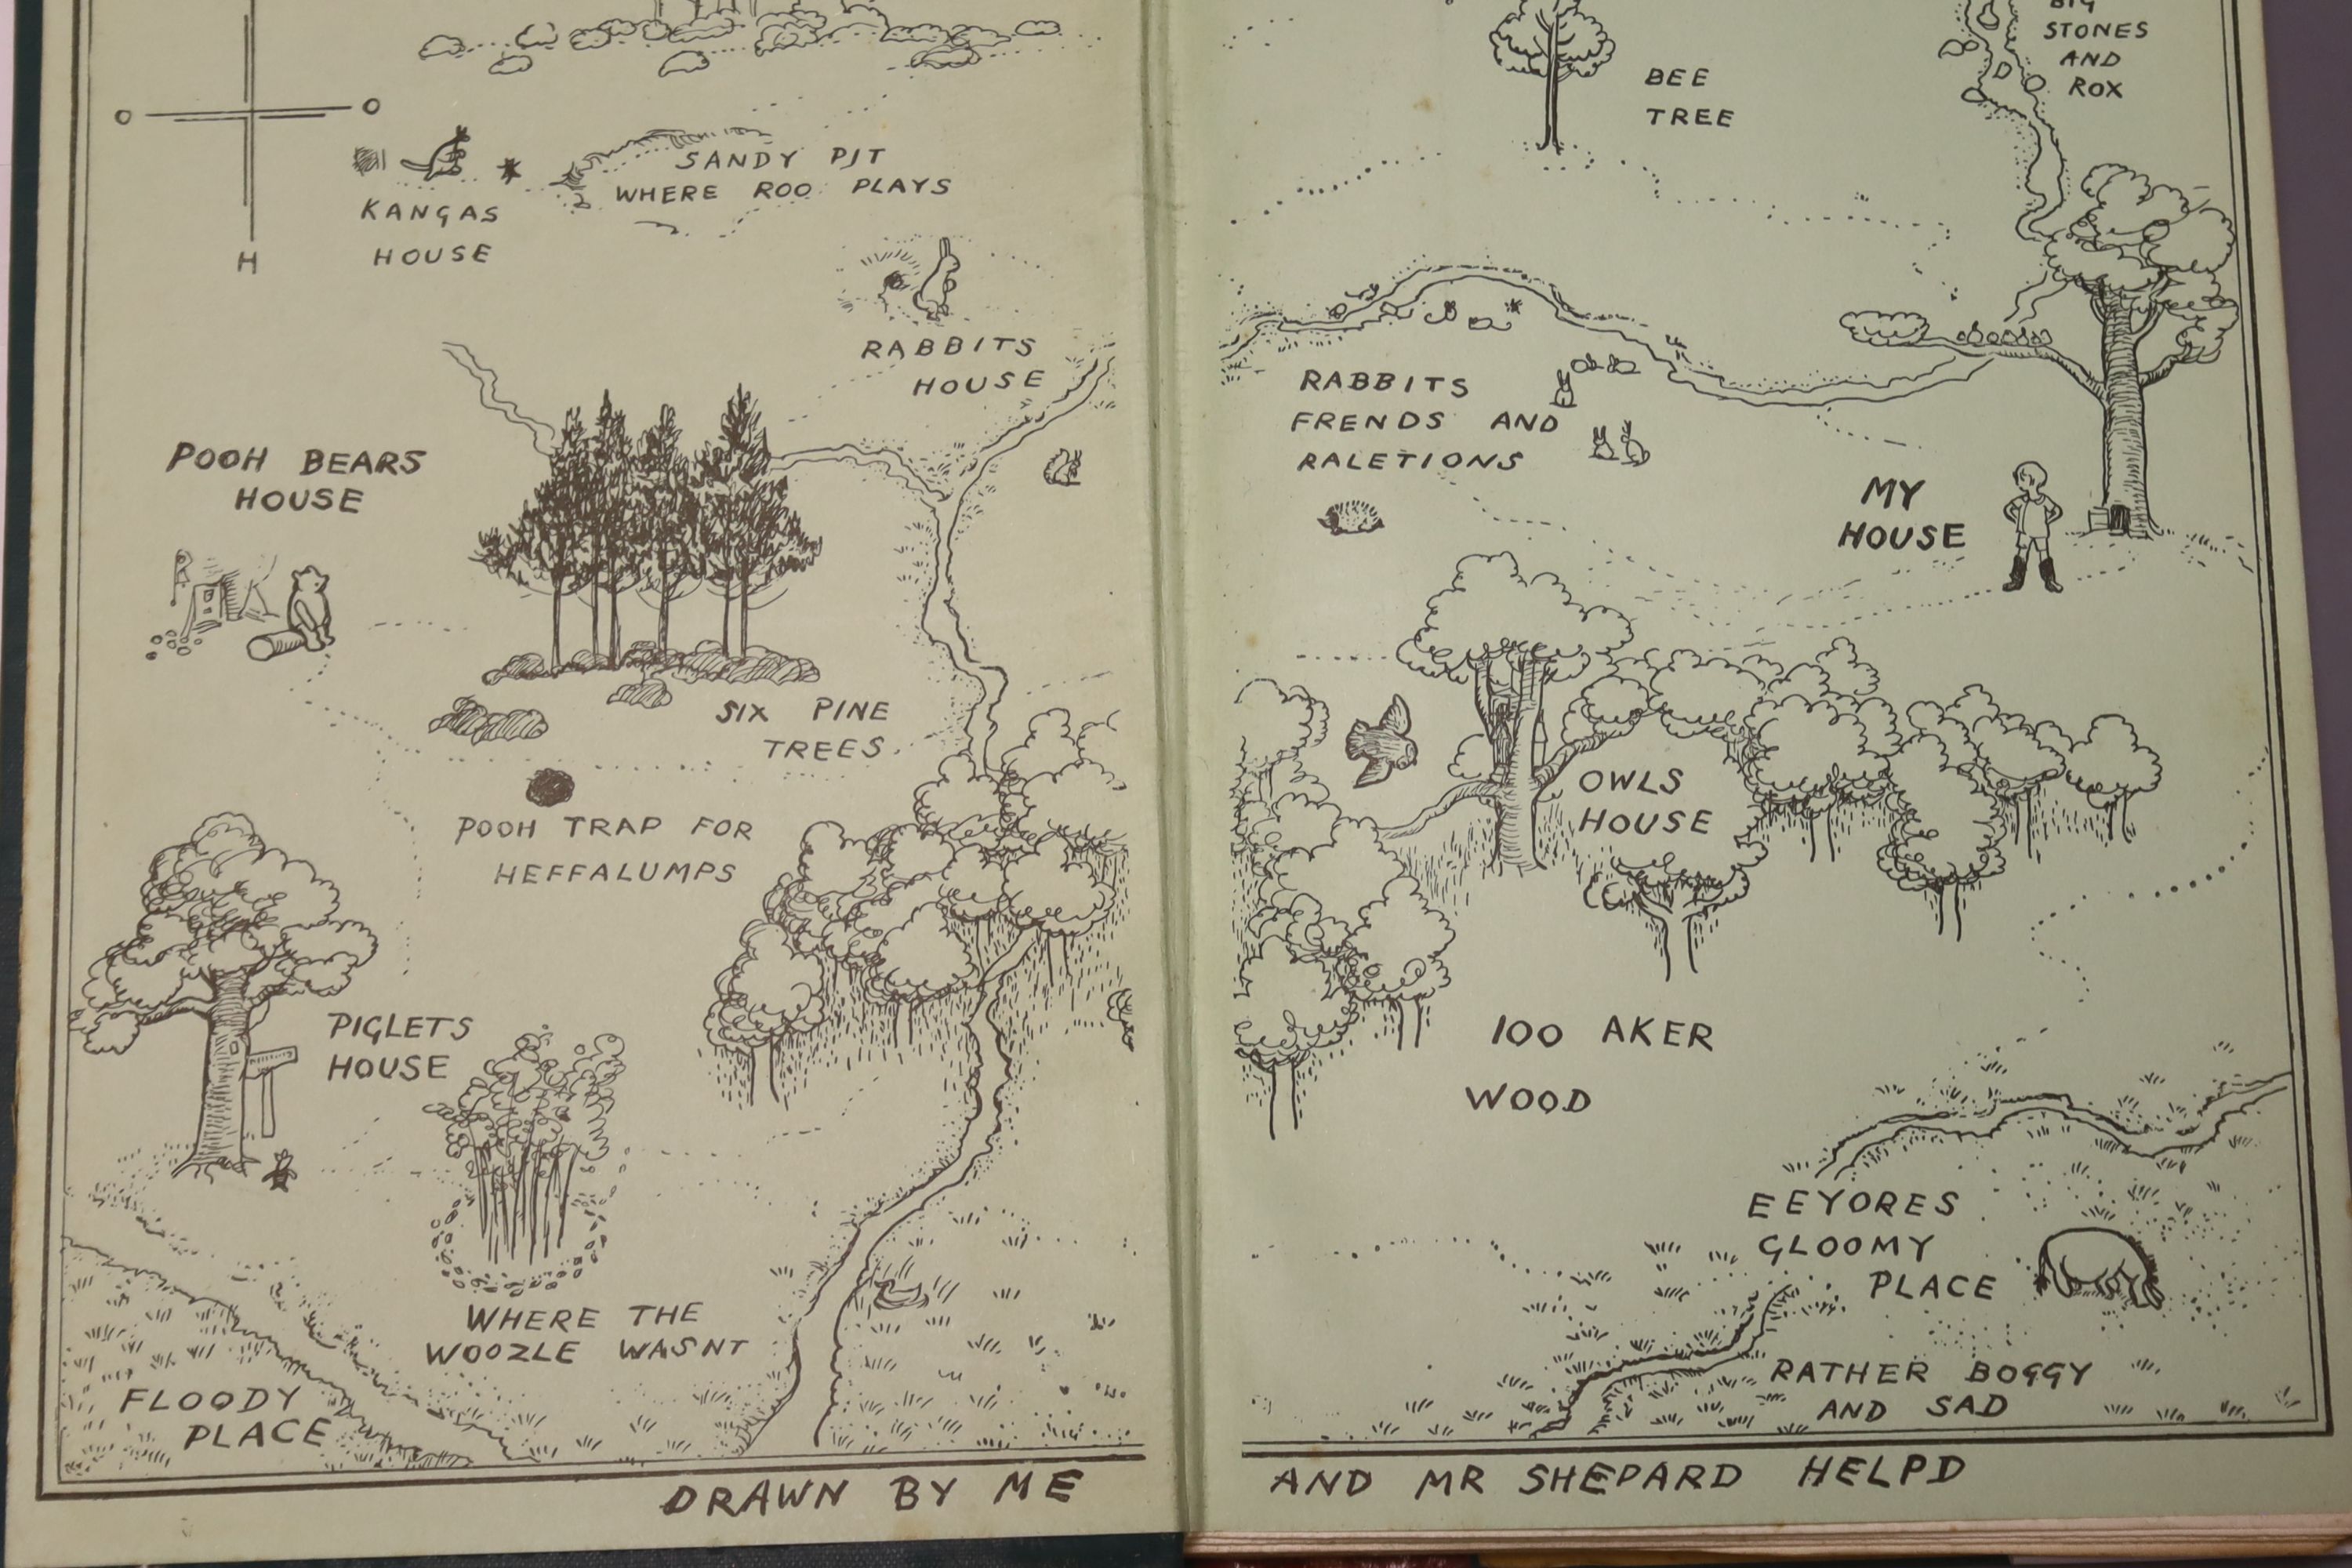 BIG
STONES
AND
ROX
BEE
TREE
O
O
H
KANGAS
HOUSE
SANDY PIT
WHERE ROO PLAYS
RABBITS
HOUSE
RABBITS
FRENDS AND
RALETIONS
POOH BEARS
HOUSE
MY
HOUSE
SIX PINE
TREES
OWLS
HOUSE
POOH TRAP FOR
HEFFALUMPS
PIGLETS
HOUSE
100 AKER
WOOD
EEYORES
GLOOMY
PLACE
WHERE THE
WOOZLE WASNT
FLOODY
PLACE
RATHER BOGGY
AND SAD
DRAWN BY ME
AND MR SHEPARD HELPD